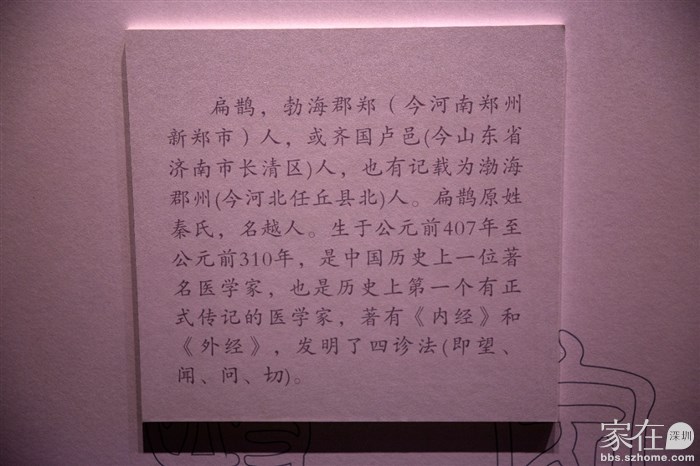 扁鹊，勃海郡郑（今河南郑州
新郑市）人，或齐国卢邑(今山东省
济南市长清区)人，也有记载为渤海
郡州(今河北任丘县北)人。扁鹊原姓
秦氏，名越人。生于公元前407年至
公元前310年，是中国历史上一位著
名医学家，也是历史上第一个有正
式传记的医学家，著有《内经》和
《外经》，发明了四诊法(即望、
闻、问、切)。
家在深圳
bbs.szhome.com